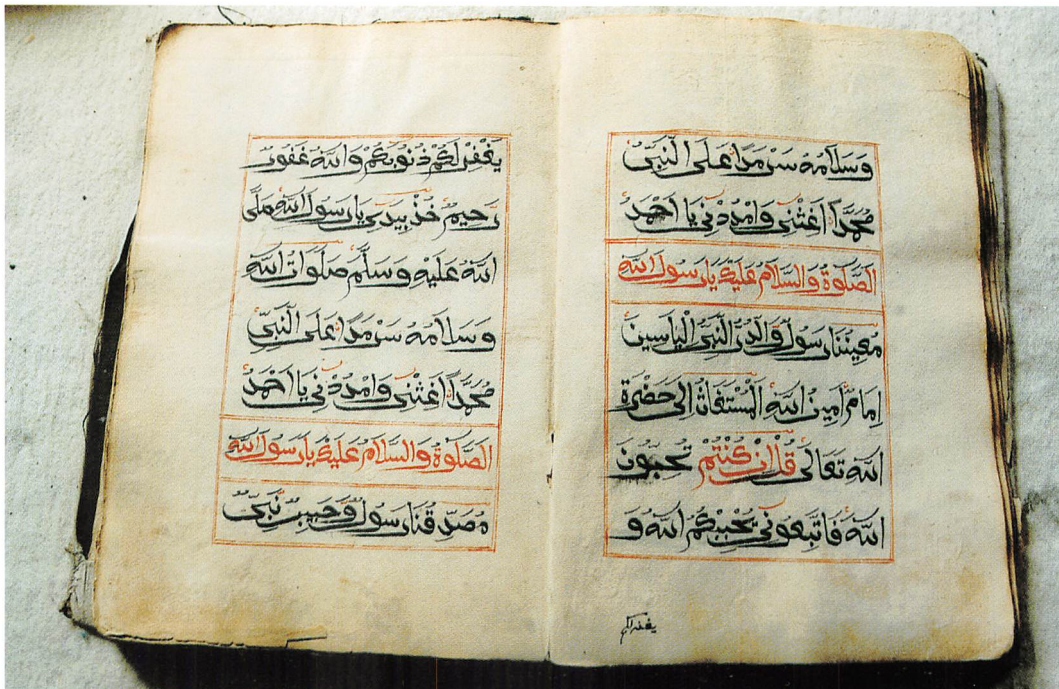 وَسَلَامُهُ سَرْمَدًا عَلَى النَّبِيِّ
مُحَمَّدًا اَغِثْنِي وَامْدُدْنِي يَا اَحْمَدُ
اَلصَّلٰوةُ وَالسَّلَامُ عَلَيْكَ يَا رَسُولَ اللّٰهِ
مُعِينُنَا رَسُولٌ وَالدُّرُّ النَّبِيُّ اِلْيَاسِينَ
اِمَامٌ اَمِينُ اللّٰهِ الْمُسْتَغَاثُ اِلٰى حَضْرَةِ
اللّٰهِ تَعَالٰى قُلْ اِنْ كُنْتُمْ تُحِبُّونَ
اللّٰهَ فَاتَّبِعُونِي يُحْبِبْكُمُ اللّٰهُ وَ
يغفر لكم
يَغْفِرْ لَكُمْ ذُنُوبَكُمْ وَاللّٰهُ غَفُورٌ
رَحِيمٌ خُذْ بِيَدِي يَا رَسُولَ اللّٰهِ صَلَّى
اللّٰهُ عَلَيْهِ وَسَلَّمَ صَلَوَاتُ اللّٰهِ
وَسَلَامُهُ سَرْمَدًا عَلَى النَّبِيِّ
مُحَمَّدًا اَغِثْنِي وَامْدُدْنِي يَا اَحْمَدُ
اَلصَّلٰوةُ وَالسَّلَامُ عَلَيْكَ يَا رَسُولَ اللّٰهِ
مُصَدِّقُنَا رَسُولٌ وَحَبِيبٌ نَبِيٌّ